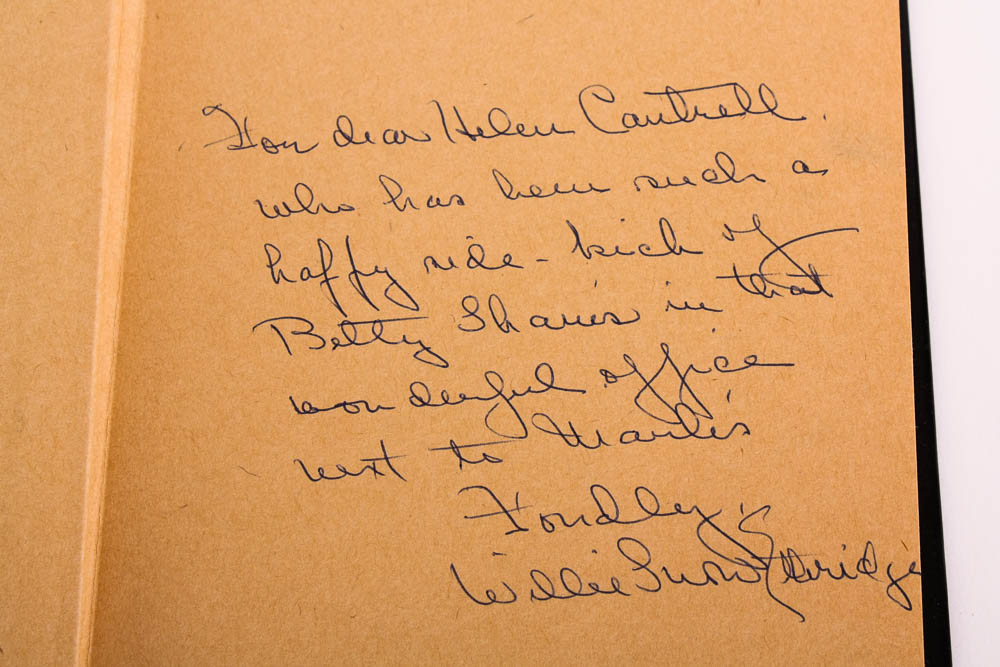 For dear Helen Cantrell,
who has been such a
happy side-kick of
Betty Shaw's in that
wonderful office
next to Mark's
Fondly,
Willie Snow Ethridge